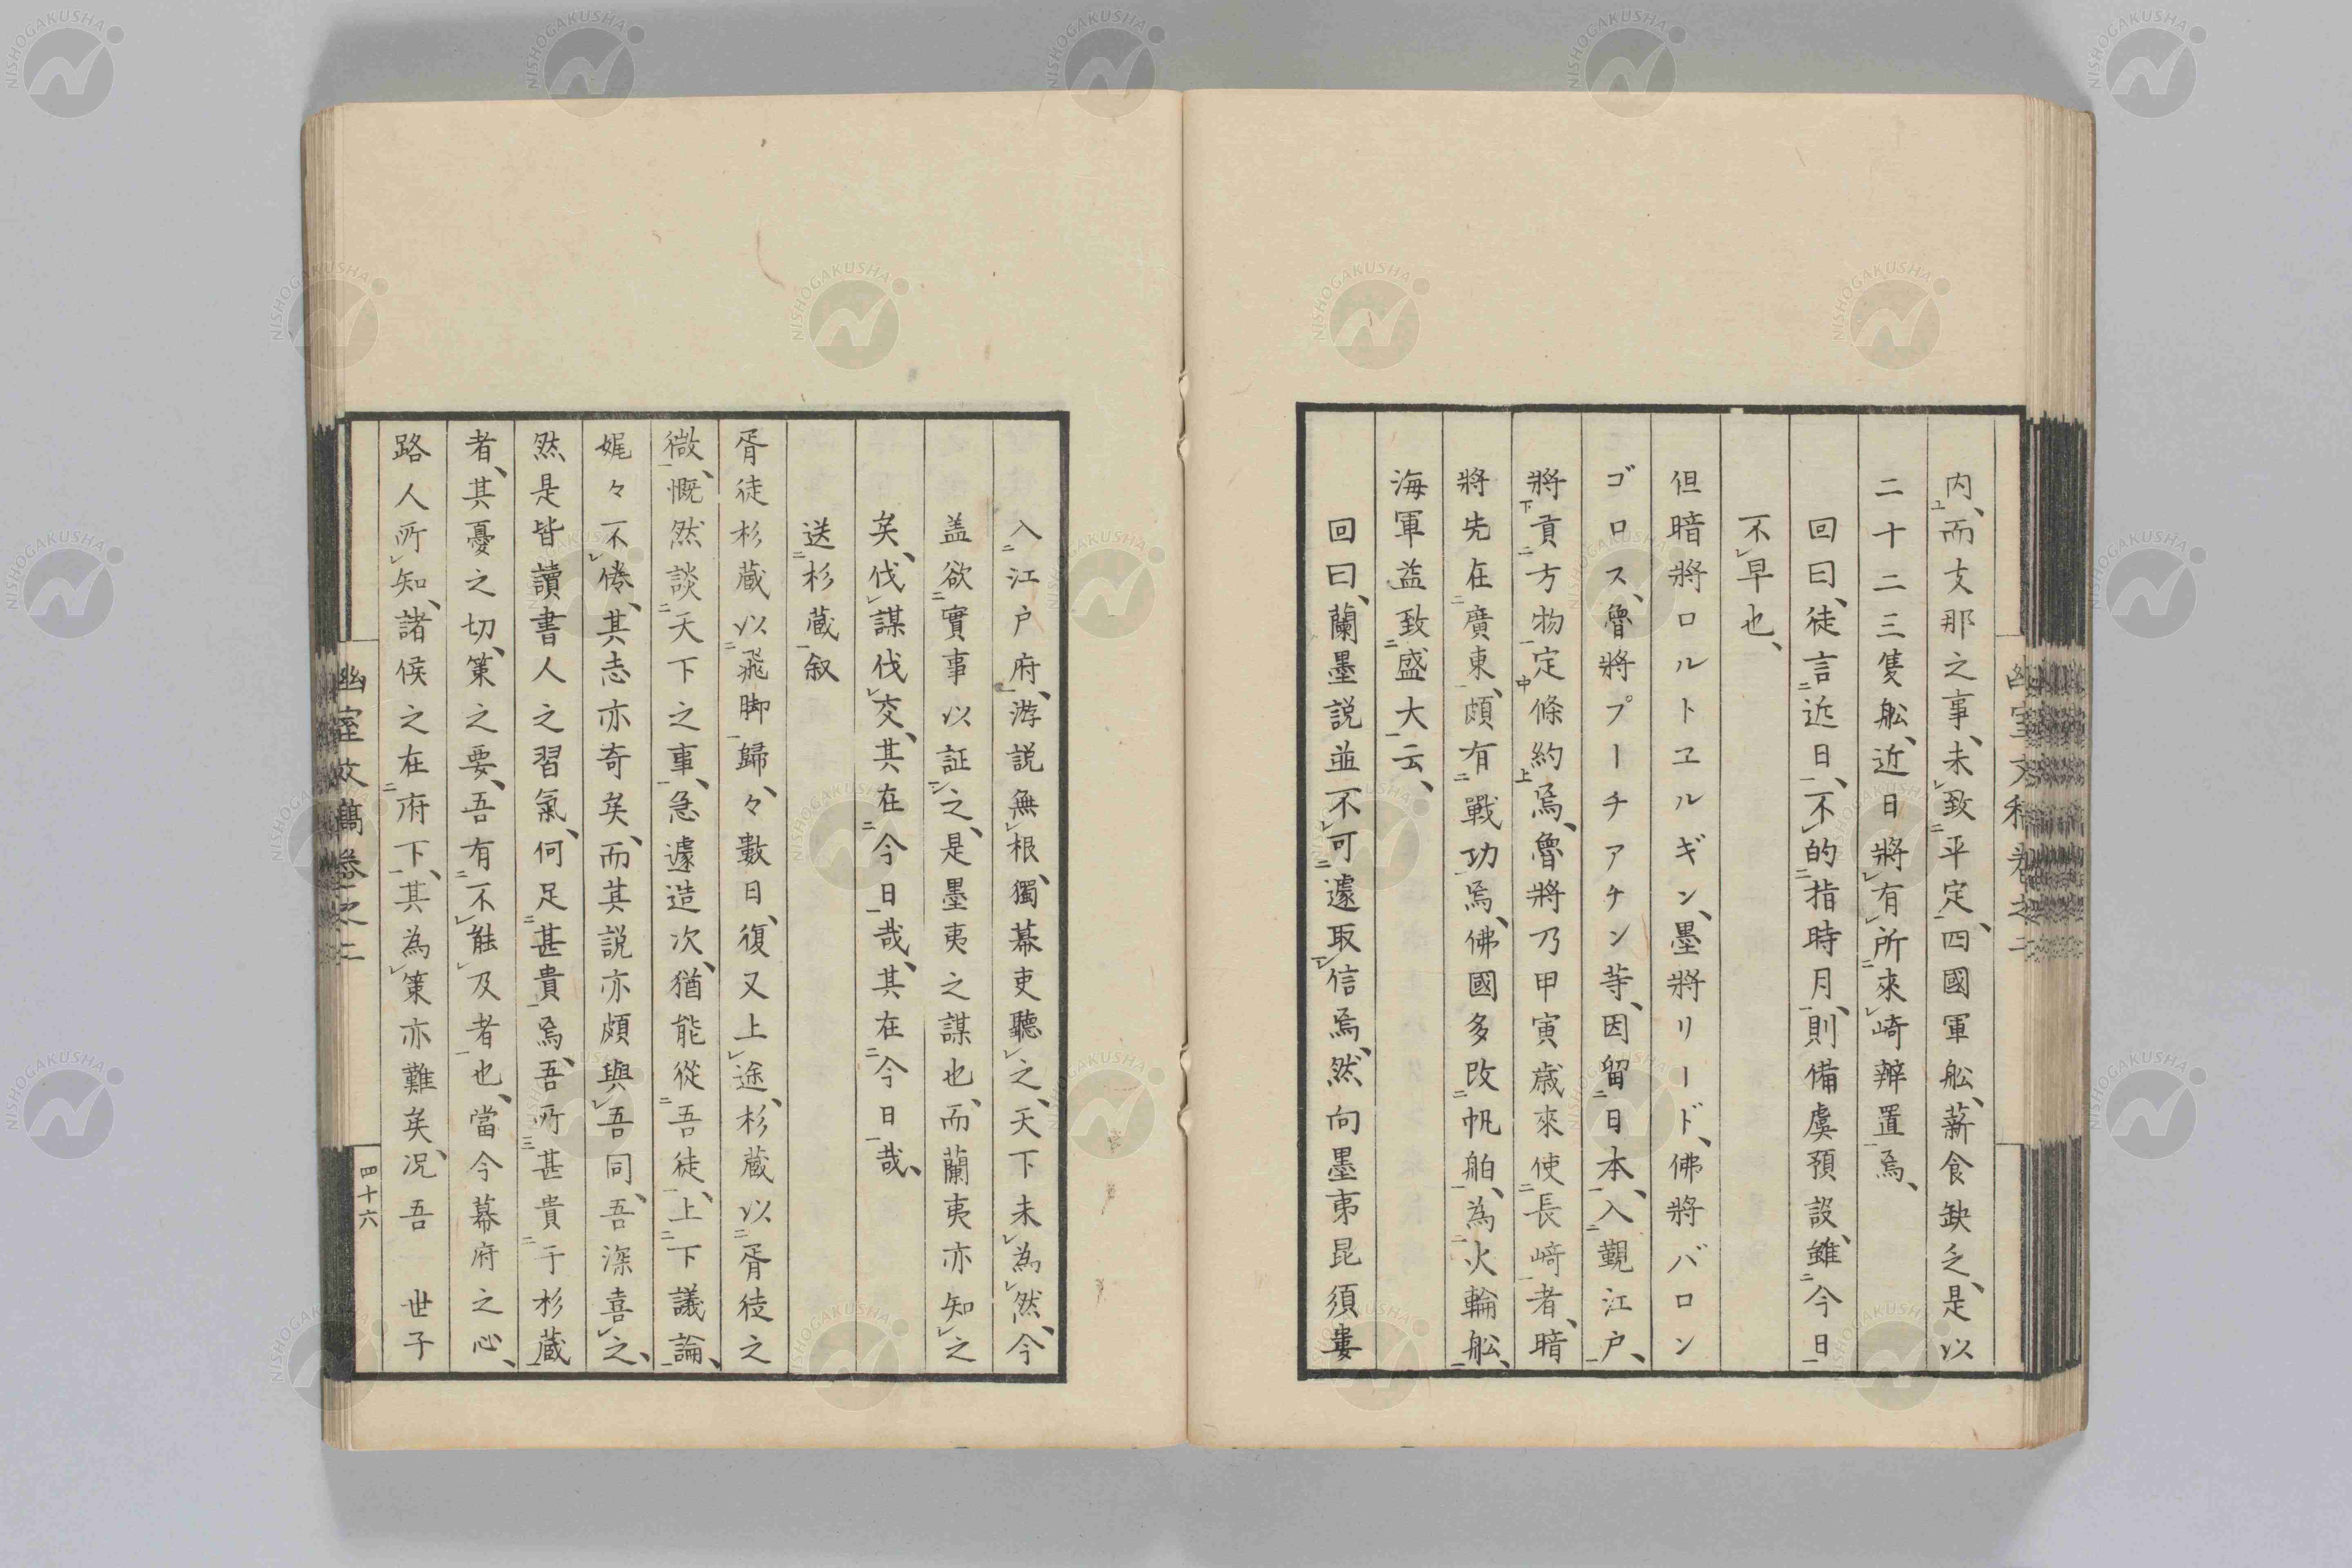 内、而支那之事、未致平定、四國軍舩、薪食缺乏、是以
二十二三隻舩、近日將有所來崎辨置焉、
回曰、徒言近日、不的指時月、則備虞預設、雖今日
不早也、
但暗將ロルトヱルギン、墨將リード、佛將バロン
ゴロス、魯將プーチアチン等、因留日本、入覲江戸、
將貢方物定條約焉、魯將乃甲寅歳來使長﨑者、暗
將先在廣東、頗有戰功焉、佛國多改帆舶、為火輪舩、
海軍益致盛大云、
回曰、蘭墨説並不可遽取信焉、然向墨夷昆須婁
入江戸府、游説無根、獨幕吏聽之、天下未為然、今
盖欲實事以証之、是墨夷之謀也、而蘭夷亦知之
矣、伐謀伐交、其在今日哉、其在今日哉、
送杉蔵叙
胥徒杉蔵以飛脚歸、々數日、復又上途、杉蔵以胥徒之
微、慨然談天下之事、急遽造次、猶能從吾徒、上下議論、
娓々不倦、其志亦奇矣、而其説亦頗與吾同、吾深喜之、
然是皆讀書人之習氣、何足甚貴焉、吾所甚貴于杉蔵
者、其憂之切、策之要、吾有不能及者也、當今幕府之心、
路人所知、諸侯之在府下、其為策亦難矣、况吾　世子
幽室文藁卷之二
四十六